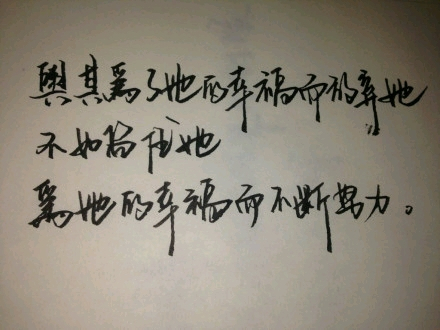 與其爲了她的幸福而放弃她
不如留住她
爲她的幸福而不断努力。